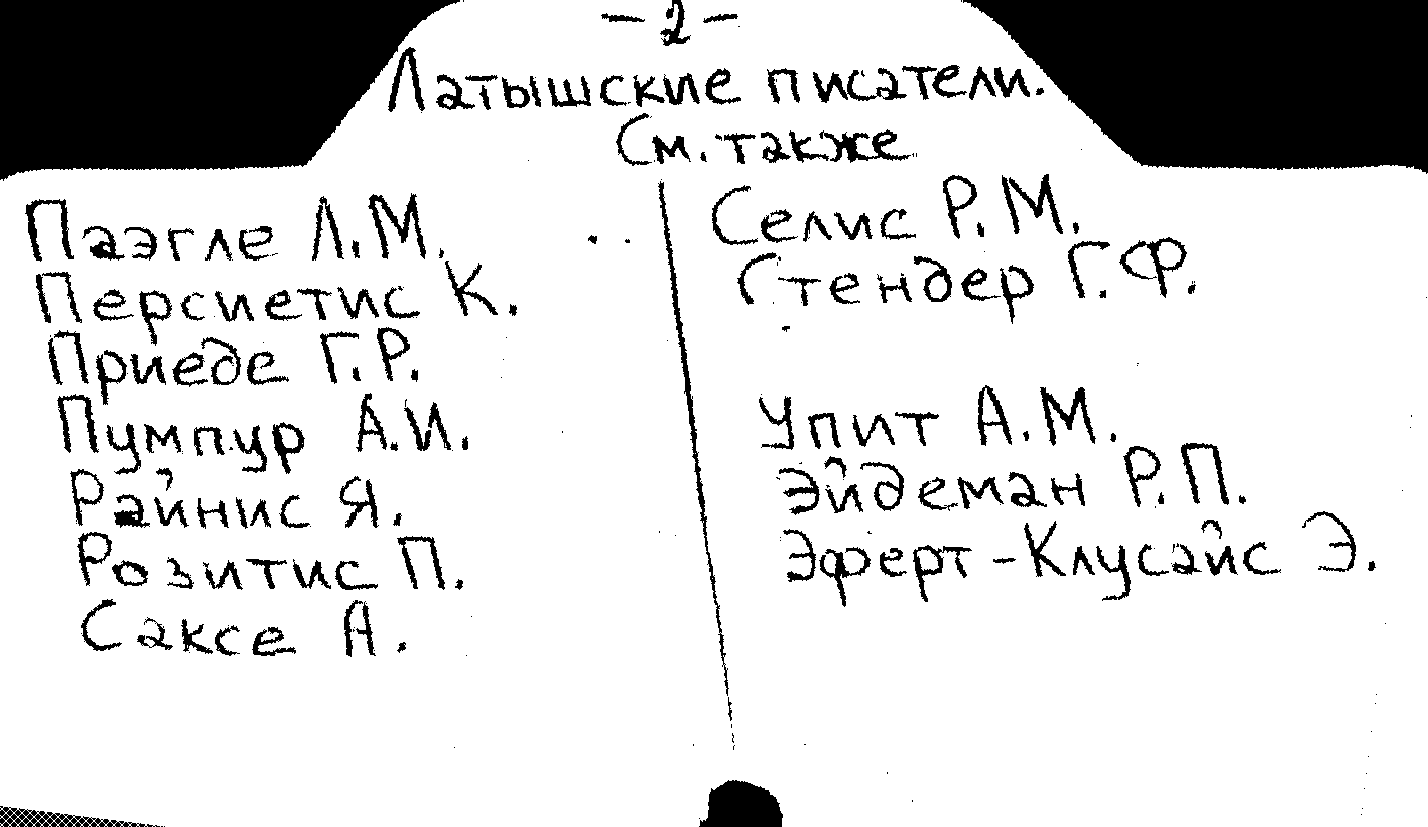 — 2 —
Латышские писатели.
См. также
Паэгле Л.М.
Персиетис К.
Приеде Г.Р.
Пумпур А.И.
Райнис Я.
Розитис П.
Саксе А.
Селис Р.М.
Стендер Г.Ф.
Упит А.М.
Эйдеман Р.П.
Эферт-Клусайс Э.